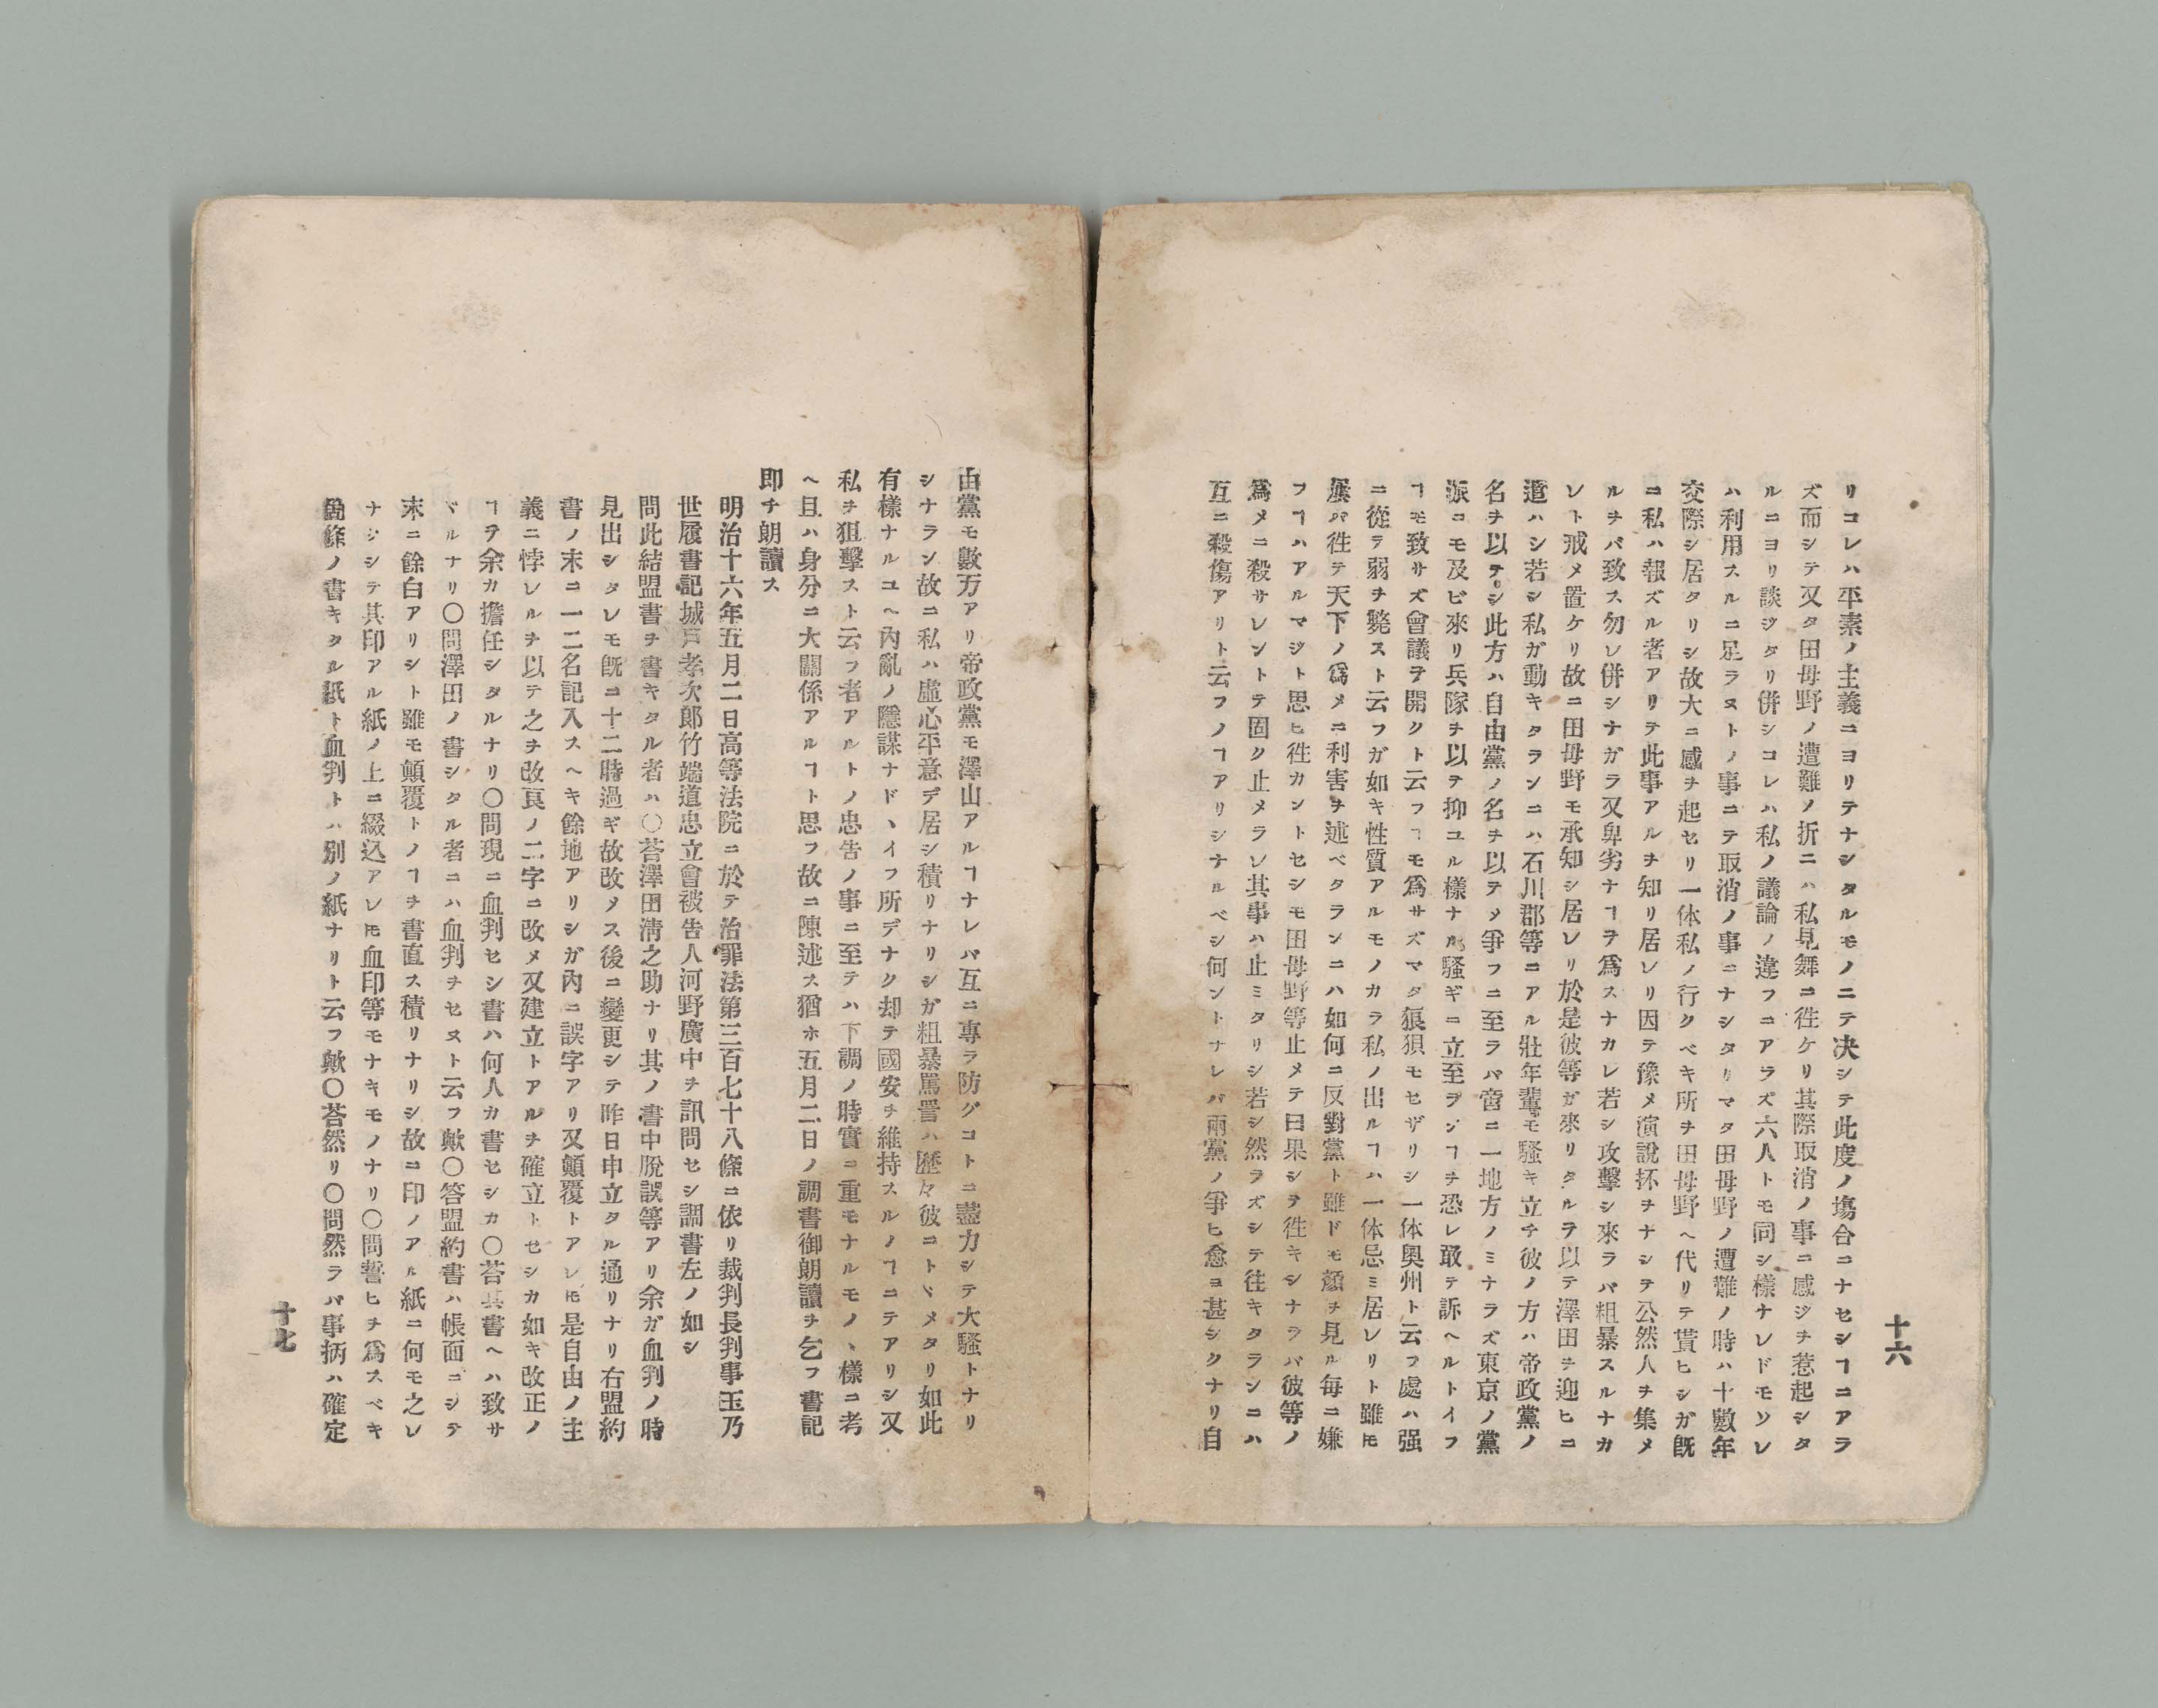 十六
リコレハ平素ノ主義ニヨリテナシタルモノニテ决シテ此度ノ塲合ニナセシヿニアラ
ズ而シテ又タ田母野ノ遭難ノ折ニハ私見舞ニ徃ケリ其際取消ノ事ニ感ジヲ惹起シタ
ルニヨリ談ジタリ併シコレハ私ノ議論ノ違フニアラズ六人トモ同シ樣ナレドモソレ
ハ利用スルニ足ラヌトノ事ニテ取消ノ事ニナシタリマタ田母野ノ遭難ノ時ハ十數年
交際シ居タリシ故大ニ感ヲ起セリ一体私ノ行クベキ所ヲ田母野ヘ代リテ貰ヒシガ旣
ニ私ハ報ズル者アリテ此事アルヲ知リ居レリ因テ豫メ演說抔ヲナシヲ公然人ヲ集メ
ルヲバ致ス勿レ併シナガラ又卑劣ナヿヲ爲スナカレ若シ攻擊シ來ラバ粗暴スルナカ
レト戒メ置ケリ故ニ田母野モ承知シ居レリ於是彼等ガ來リタルヲ以テ澤田ヲ迎ヒニ
遣ハシ若シ私ガ動キタランニハ石川郡等ニアル壯年輩モ騷キ立チ彼ノ方ハ帝政黨ノ
名ヲ以テシ此方ハ自由黨ノ名ヲ以テメ爭フニ至ラバ啻ニ一地方ノミナラズ東京ノ黨
派ニモ及ビ來リ兵隊ヲ以テ抑ユル樣ナル騷ギニ立至ランヿヲ恐レ敢テ訴ヘルトイフ
ヿモ致サズ會議ヲ開クト云フヿモ爲サズマタ狼狽モセザリシ一体奧州ト云フ處ハ强
ニ從テ弱ヲ斃スト云フガ如キ性質アルモノカラ私ノ出ルヿハ一体忌ミ居レリト雖モ
屢々徃テ天下ノ爲メニ利害ヲ述ベタランニハ如何ニ反對黨ト雖ドモ顏ヲ見ル每ニ嫌
フヿハアルマジト思ヒ徃カントセシモ田母野等止メテ曰果シテ徃キシナラバ彼等ノ
爲メニ殺サレントテ固ク止メラレ其事ハ止ミタリシ若シ然ラズシテ往キタランニハ
互ニ殺傷アリト云フノヿアリシナルベシ何ントナレバ兩黨ノ爭ヒ愈ヨ甚シクナリ自
由黨モ數万アリ帝政黨モ澤山アルヿナレバ互ニ專ラ防グコトニ盡力シテ大騷トナリ
シナラン故ニ私ハ虛心平意デ居シ積リナリシガ粗暴罵詈ハ歷々彼ニトヾメタリ如此
有樣ナルユヘ內亂ノ隱謀ナドヽイフ所デナク却テ國安ヲ維持スルノヿニテアリシ又
私ヲ狙擊スト云フ者アルトノ忠告ノ事ニ至テハ下調ノ時實ニ重モナルモノヽ樣ニ考
ヘ且ハ身分ニ大關係アルヿト思フ故ニ陳述ス猶ホ五月二日ノ調書御朗讀ヲ乞フ書記
即チ朗讀ス
明治十六年五月二日高等法院ニ於テ治罪法第三百七十八條ニ依リ裁判長判事玉乃
世履書記城戶孝次郞竹端道忠立會被告人河野廣中ヲ訊問セシ調書左ノ如シ
問此結盟書ヲ書キタル者ハ〇荅澤田淸之助ナリ其ノ書中脫誤等アリ余ガ血判ノ時
見出シタレモ旣ニ十二時過ギ故改メス後ニ變更シテ昨日申立タル通リナリ右盟約
書ノ末ニ一二名記入スヘキ餘地アリシガ內ニ誤字アリ又顚覆トアレモ是自由ノ主
義ニ悖レルヲ以テ之ヲ改良ノ二字ニ改メ又建立トアルヲ確立トセシカ如キ改正ノ
ヿヲ余カ擔任シタルナリ〇問現ニ血判セシ書ハ何人カ書セシカ〇荅其書ヘハ致サ
ヾルナリ〇問澤田ノ書シタル者ニハ血判ヲセヌト云フ歟〇答盟約書ハ帳面ニシテ
末ニ餘白アリシト雖モ顚覆トノヿヲ書直ス積リナリシ故ニ印ノアル紙ニ何モ之レ
ナシシテ其印アル紙ノ上ニ綴込アレ𪜈血印等モナキモノナリ〇問誓ヒヲ爲スベキ
箇條ノ書キタル紙ト血判トハ別ノ紙ナリト云フ歟〇荅然リ〇問然ラバ事柄ハ確定
十七